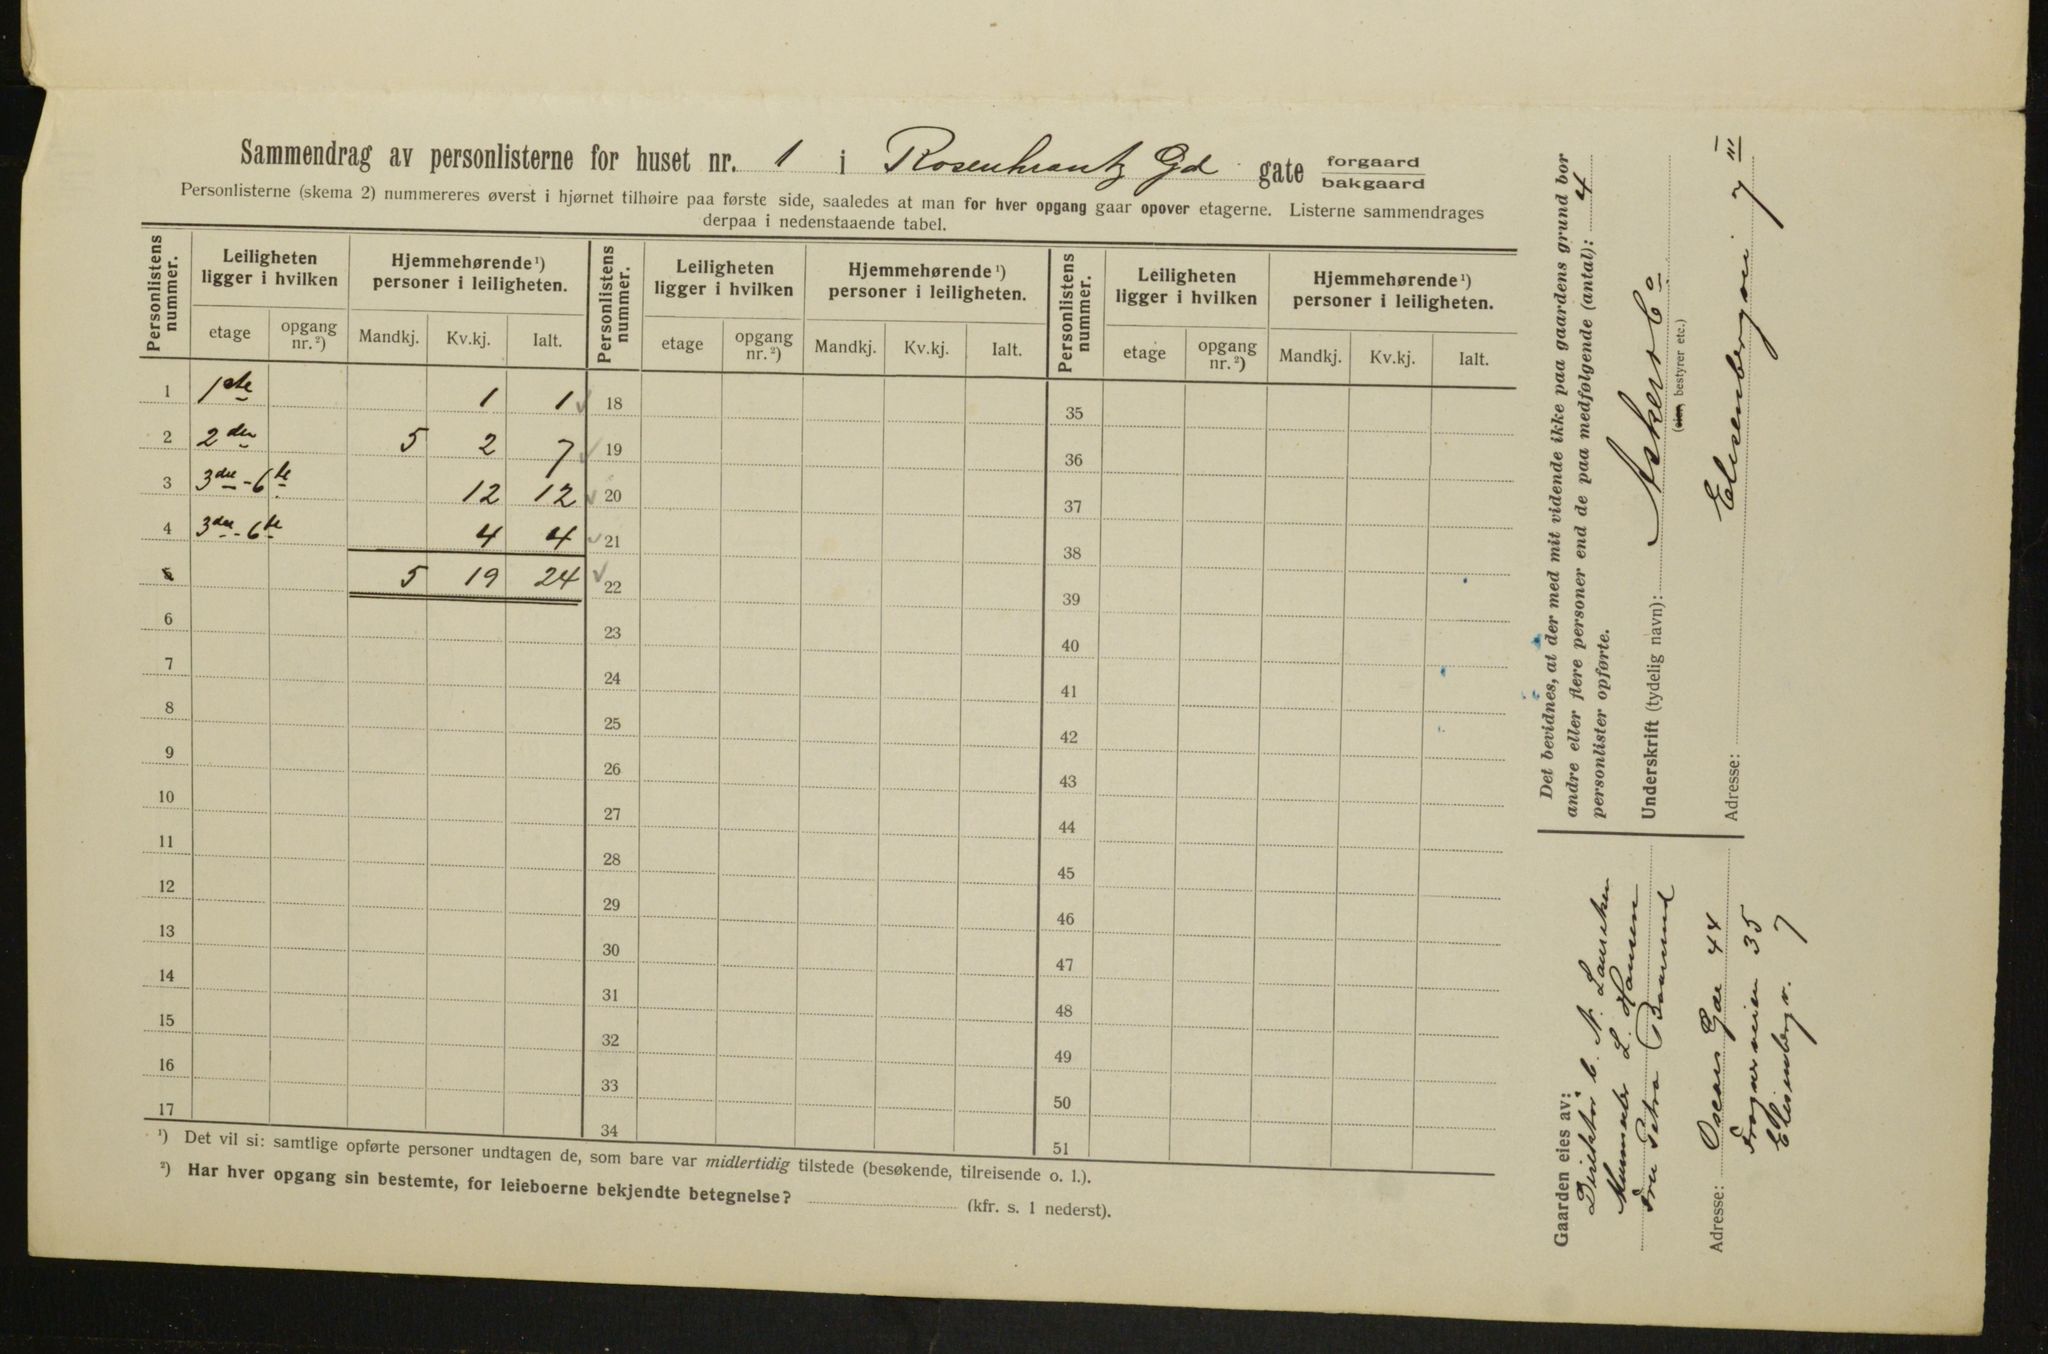 Sammendrag av personlisterne for huset nr. 1 i Rosenkrantz Gd gate forgaard bakgaard
Personlisterne (skema 2) nummereres øverst i hjørnet tilhøire paa første side, saaledes at man for hver opgang gaar opover etagerne. Listerne sammendrages
derpaa i nedenstaaende tabel.
Personlistens nummer. Leiligheten ligger i hvilken Hjemmehørende ¹) personer i leiligheten. Personlistens nummer. Leiligheten ligger i hvilken Hjemmehørende ¹) personer i leiligheten. Personlistens nummer. Leiligheten ligger i hvilken Hjemmehørende ¹) personer i leiligheten.
etage opgang nr. ²) Mandkj. Kv.kj. Ialt. etage opgang nr. ²) Mandkj. Kv.kj. Ialt. etage opgang nr. ²) Mandkj. Kv.kj. Ialt.
1 1ste 1 1 18 35
2 2den 5 2 7 19 36
3 3die - 6te 12 12 20 37
4 3die - 6te 4 4 21 38
5 5 19 24 22 39
6 23 40
7 24 41
8 25 42
9 26 43
10 27 44
11 28 45
12 29 46
13 30 47
14 31 48
15 32 49
16 33 50
17 34 51
¹) Det vil si: samtlige opførte personer undtagen de, som bare var midlertidig tilstede (besøkende, tilreisende o. l.).
²) Har hver opgang sin bestemte, for leieboerne bekjendte betegnelse? (kfr. s. 1 nederst).
Det bevidnes, at der med mit vidende ikke paa gaardens grund bor
andre eller flere personer end de paa medfølgende (antal): 4
personlister opførte.
Underskrift (tydelig navn): Asker & Co
(eier, bestyrer etc.)
Adresse: Elisenbergvei 7 III
Gaarden eies av:
Direktør C. N. Lauritzen
L. Hansen
Fru Petra
Adresse: Oscars Gde 44
Frognerveien 35
Elisenbergv. 7